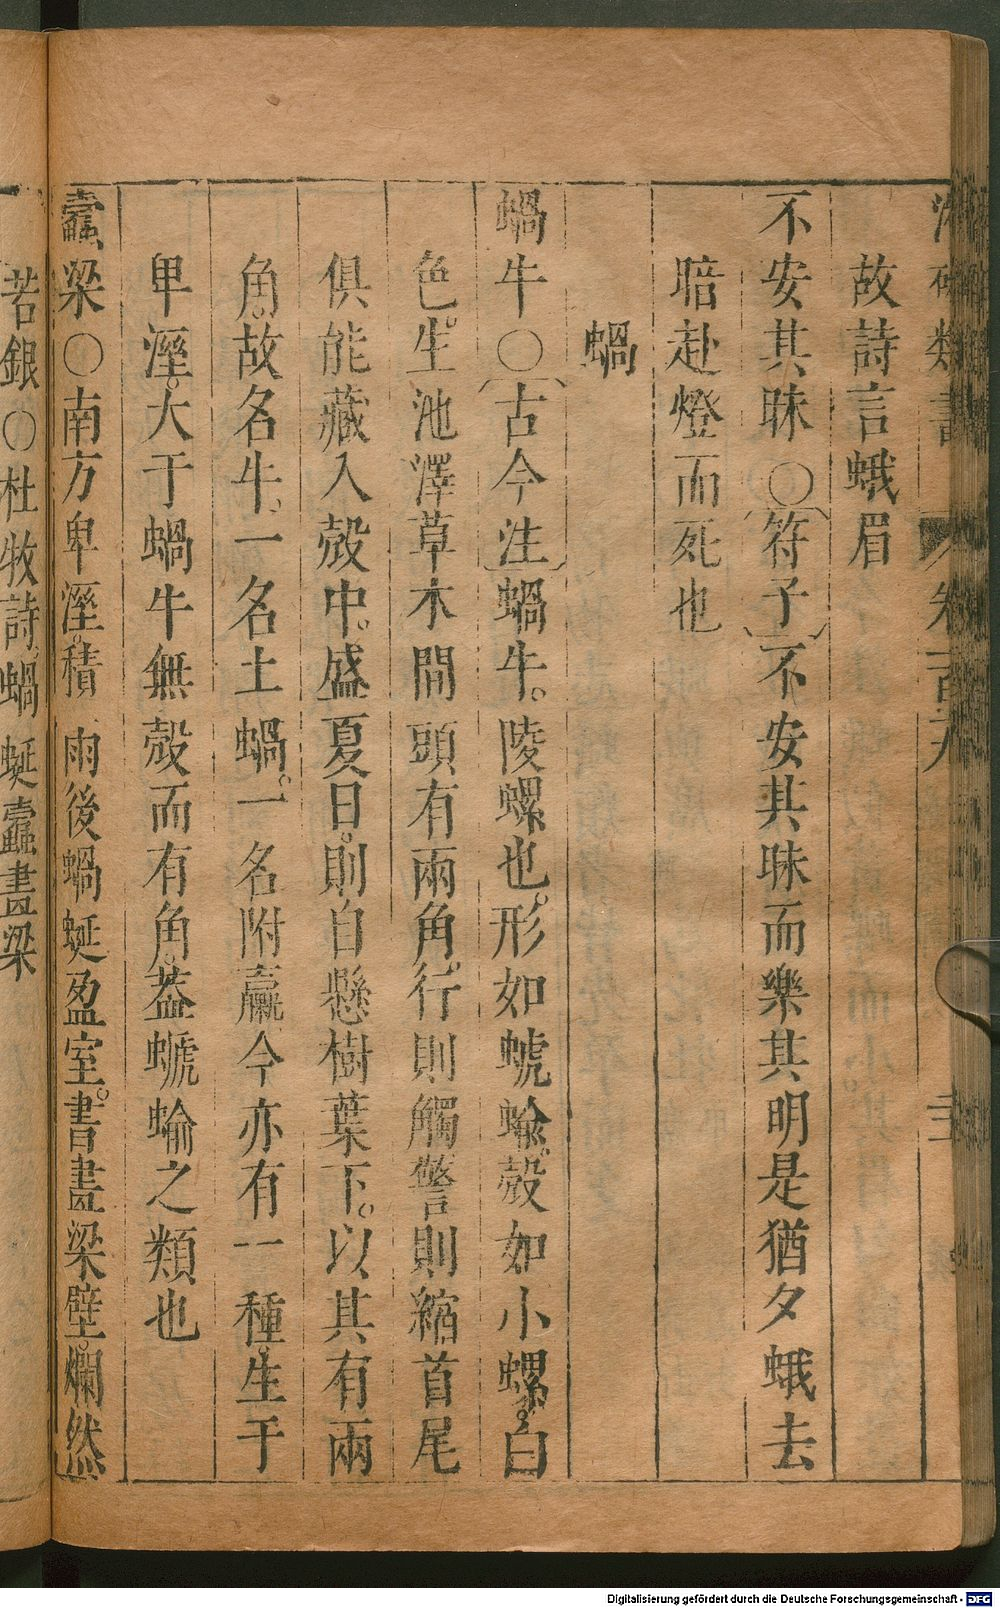 類書 卷
故詩言蛾眉
不安其昧○〔符子〕不安其昧而樂其明是猶夕蛾去
暗赴燈而死也
蝸
蝸牛○〔古今注〕蝸牛。陵螺也。形如螔蝓。殼如小螺。白
色。生池澤草木間頭有兩角。行則觸警則縮首尾
俱能藏入殼中。盛夏日。則自懸樹葉下。以其有兩
角。故名牛。一名土蝸。一名附蠃今亦有一種。生于
卑溼。大于蝸牛無殼而有角。葢螔蝓之類也
蠹梁○南方卑溼。積雨後蝸蜒盈室。書畫梁壁。爛然
若銀○杜牧詩。蝸蜒蠹畫梁
Digitalisierung gefördert durch die Deutsche Forschungsgemeinschaft - DFG